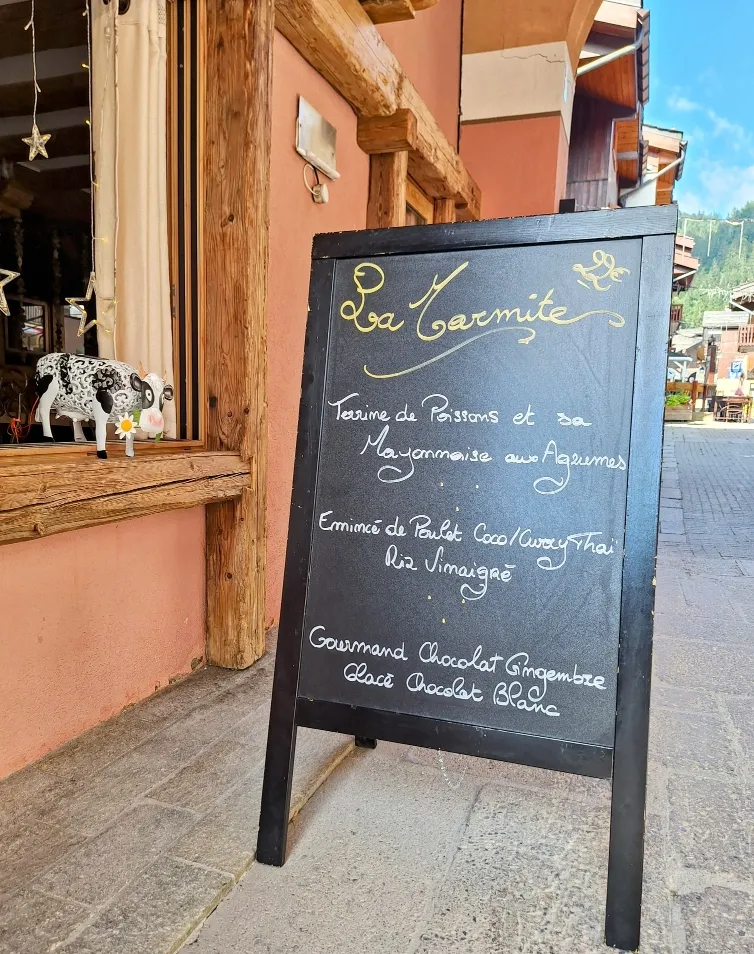 La Marmite 22€
Terrine de Poissons et sa
Mayonnaise aux Agrumes
Emincé de Poulet Coco/Curry Thaï
Riz Vinaigré
Gourmand Chocolat Gingembre
Glace Chocolat Blanc